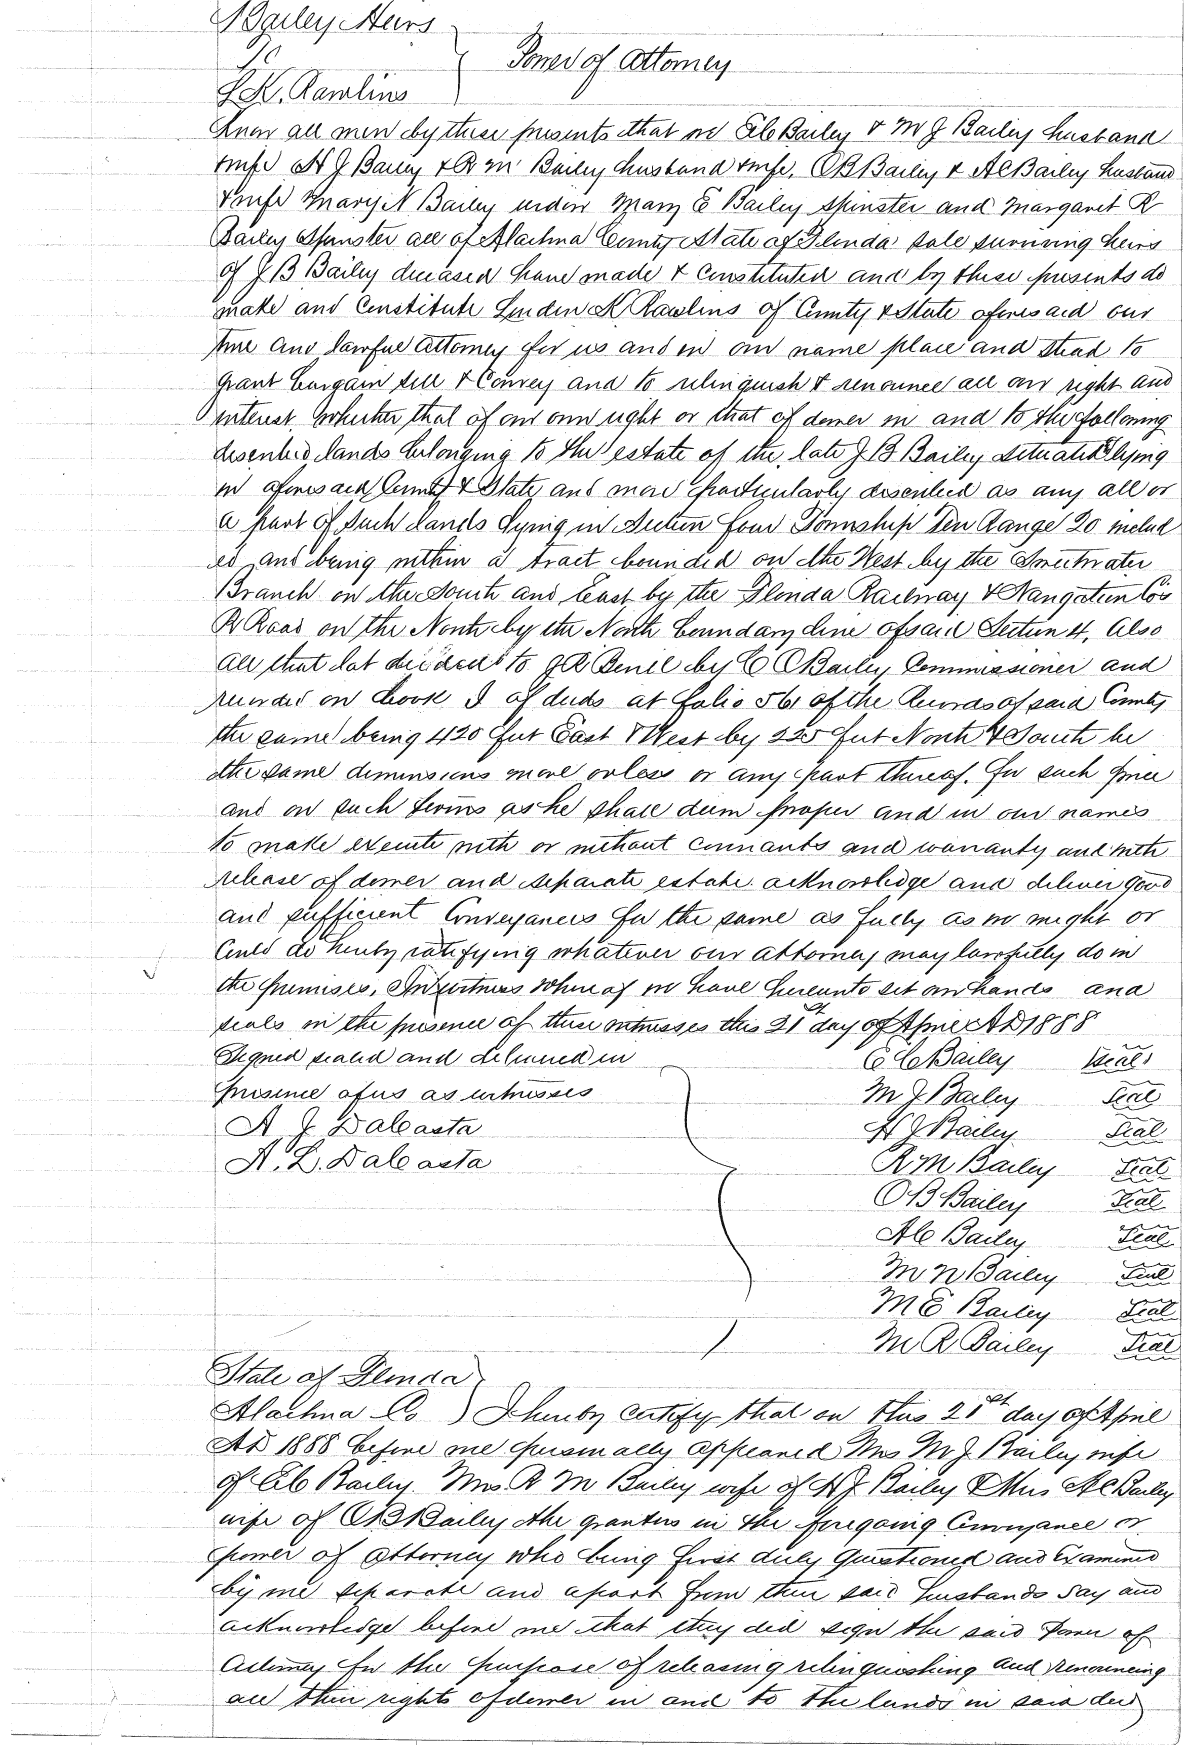 Bailey Heirs
To
L K. Rawlins
Power of Attorney
Know all men by these presents that we E C Bailey & M J Bailey husband
& wife H J Bailey & R M Bailey husband & wife, O B Bailey & A C Bailey husband
& wife Mary N Bailey widow Mary E Bailey Spinster and Margaret R
Bailey Spinster all of Alachua County State of Florida sole surviving heirs
of J B Bailey deceased have made & constituted and by these presents do
make and constitute Linden K Rawlins of County & State aforesaid our
true and lawful attorney for us and in our name place and stead to
grant bargain sell & convey and to relinquish & renounce all our right and
interest whether that of our own right or that of dower in and to the following
described lands belonging to the estate of the late J B Bailey situate lying
in aforesaid County & State and more particularly described as any all or
a part of such lands lying in Section four Township Ten Range 20 includ
ed and being within a tract bounded on the West by the Sweetwater
Branch on the South and East by the Florida Railway & Navigation Co's
R Road on the North by the North boundary line of said Section 4. Also
all that lot deeded to by E C Bailey Commissioner and
recorded on book I of deeds at folio 561 of the Records of said County
the same being 420 feet East & West by 225 feet North & South be
the same dimensions more or less or any part thereof. for such price
and on such terms as he shall deem proper and in our names
to make execute with or without covenants and warranty and with
release of dower and separate estate acknowledge and deliver good
and sufficient Conveyances for the same as fully as we might or
could do hereby ratifying whatever our attorney may lawfully do in
the premises. In witness whereof we have hereunto set our hands and
seals in the presence of these witnesses this 21st day of April AD 1888
Signed sealed and delivered in
presence of us as witnesses
A J Dalcasta
A. L. Dalcasta
E C Bailey Seal
M J Bailey Seal
H J Bailey Seal
R M Bailey Seal
O B Bailey Seal
A C Bailey Seal
M N Bailey Seal
M E Bailey Seal
M R Bailey Seal
State of Florida
Alachua Co ) I hereby certify that on this 21st day of April
AD 1888 before me personally appeared Mrs M J Bailey wife
of E C Bailey Mrs R M Bailey wife of H J Bailey & Mrs A C Bailey
wife of O B Bailey the grantors in the foregoing Conveyance or
power of attorney who being first duly questioned and examined
by me separate and apart from their said husbands say and
acknowledge before me that they did sign the said Power of
Attorney for the purpose of releasing relinquishing and renouncing
all their rights of dower in and to the lands in said deed